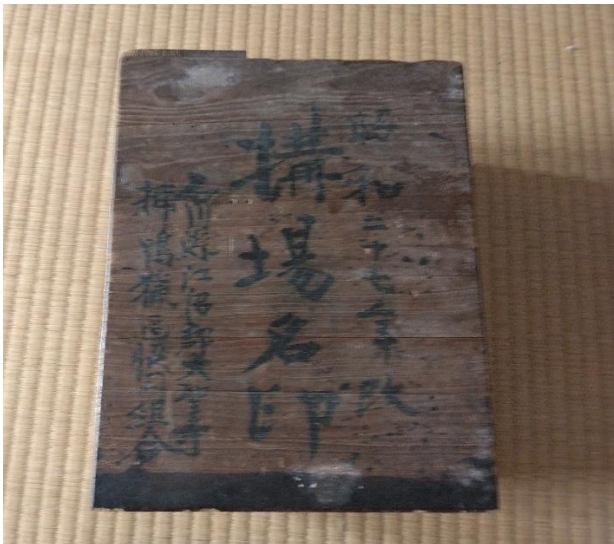 昭和二十七年改
搆場名印
石川県江沼郡大聖寺
捕鴨猟區組合